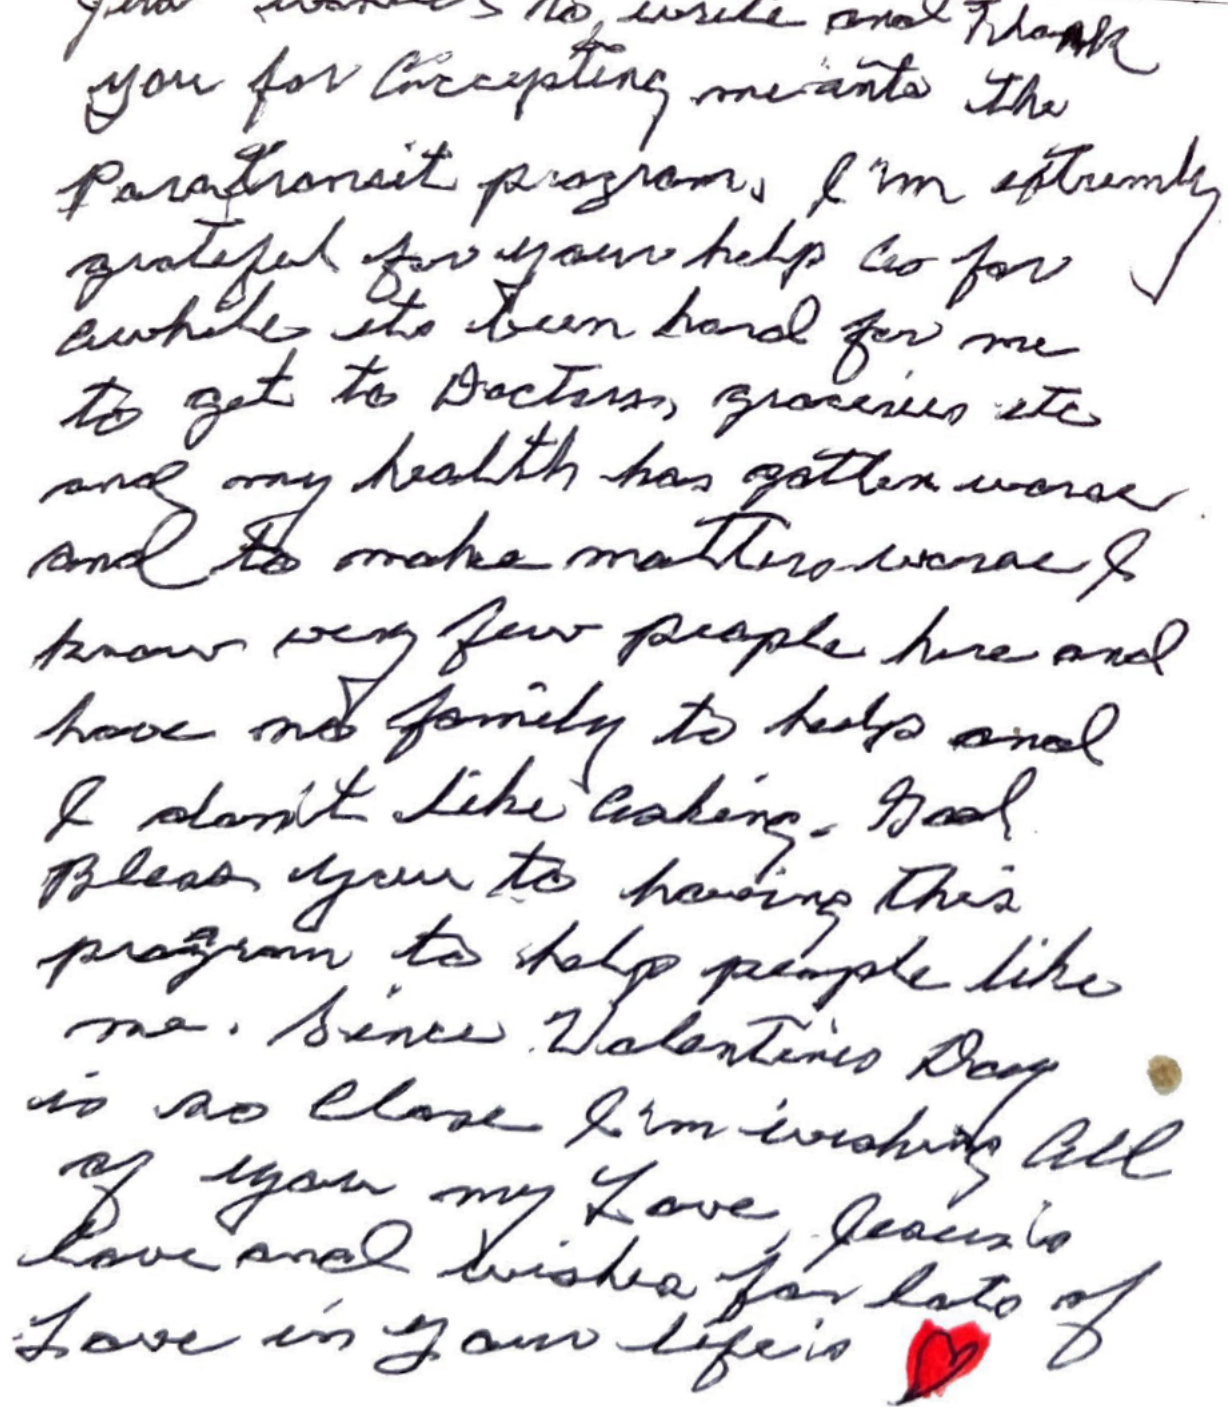 Just wanted to write and thank
you for accepting me into the
Paratransit program, I'm extremly
grateful for your help as for
awhile its been hard for me
to get to Doctors, groceries etc
and my health has gotten worse
and to make matters worse I
know very few people here and
have no family to help and
I don't like asking. God
Bless you to having this
program to help people like
me. Since Valentines Day
is so close I'm wishing all
of you my Love, Jesus's
love and wishes for lots of
Love in your life's